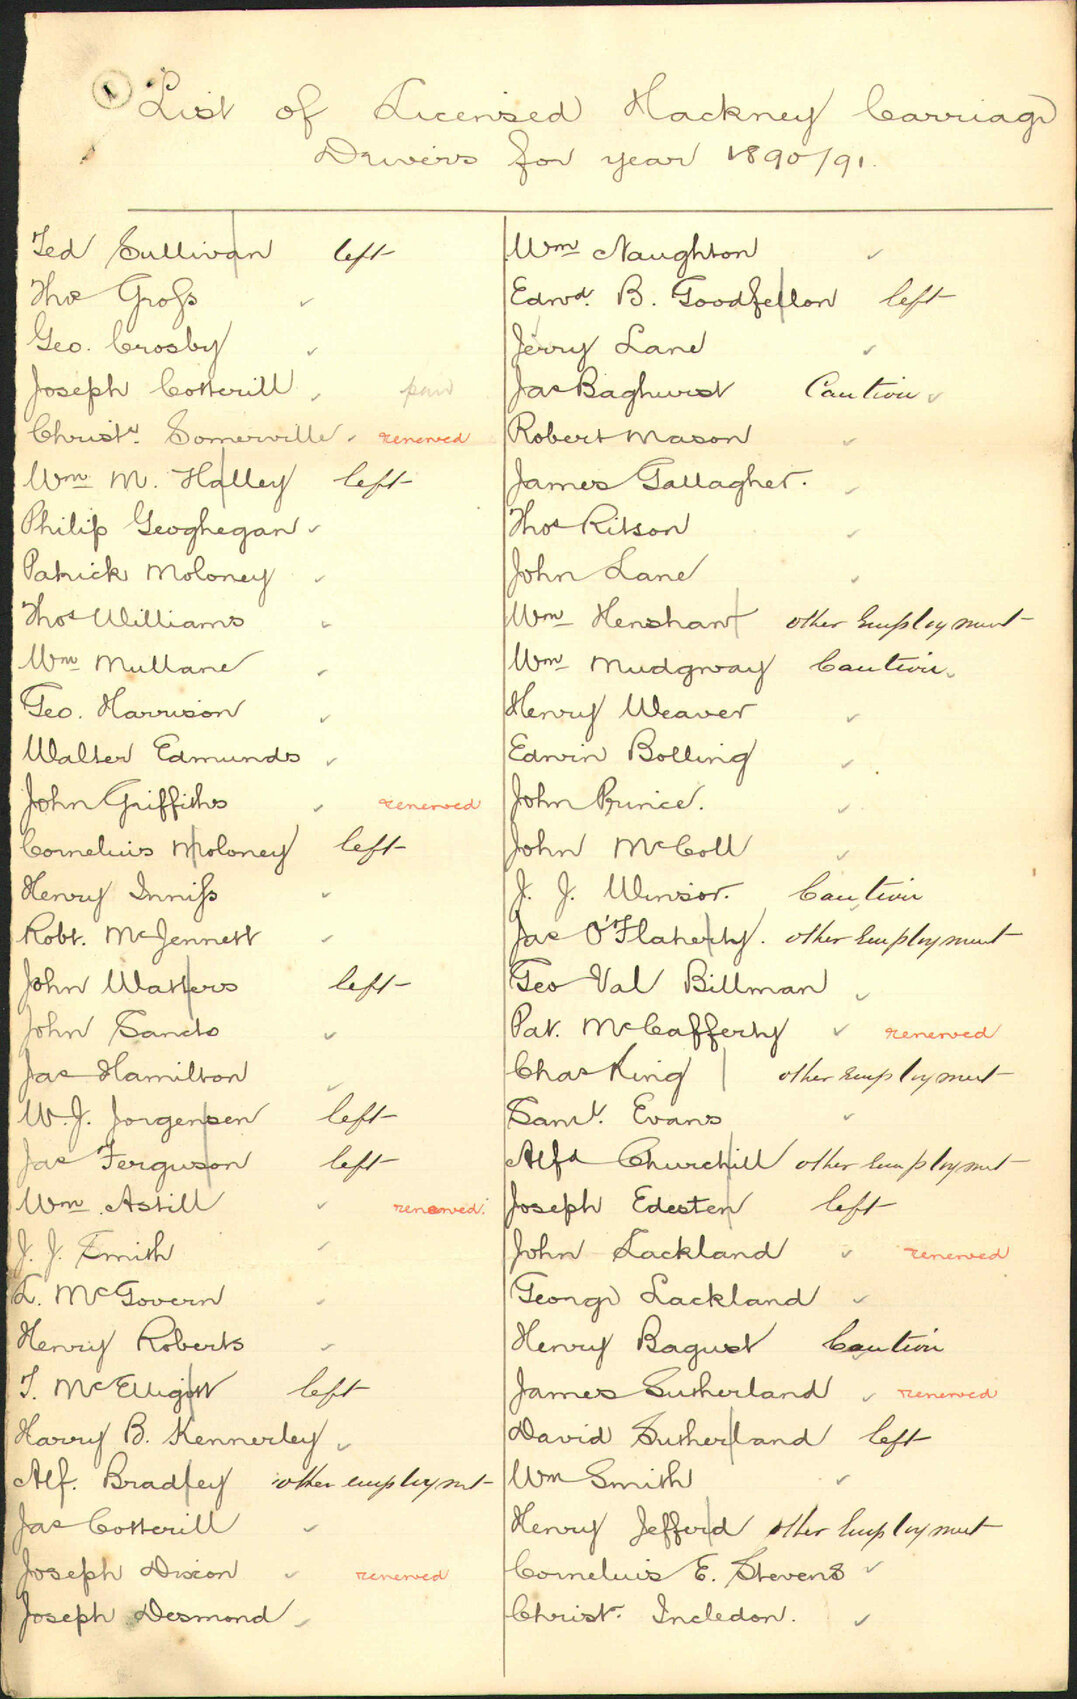 1
List of Licensed Hackney Carriage
Drivers for year 1890/91.
Ted Sullivan left
Thos Gross
Geo. Crosby
Joseph Cotterill paid
Christr. Somerville renewed
Wm M. Halley left
Philip Geoghegan
Patrick Moloney
Thos Williams
Wm Mullane
Geo. Harrison
Walter Edmunds
John Griffiths renewed
Cornelius Moloney left
Henry Inniss
Robt. McJennett
John Watters left
John Sands
Jas Hamilton
W. J. Jorgensen left
Jas Ferguson left
Wm Astill renewed.
J. J. Smith
L. McGovern
Henry Roberts
T. McElligott left
Harry B. Kennerley
Alf. Bradley other employmt
Jas Cotterill
Joseph Dixon renewed
Joseph Desmond
Wm Naughton
Edwd. B. Goodfellow left
Jerry Lane
Jas Baghurst Caution
Robert Mason
James Gallagher.
Thos Ritson
John Lane
Wm Henshaw other Employment
Wm Mudgway Caution
Henry Weaver
Edwin Bolling
John Prince.
John McColl
J. J. Winsor. Caution
Jas O'Flaherty. other Employment
Geo Val Billman
Pat. McCafferty renewed
Chas King other Employment
Saml. Evans
Alfd Churchill other Employmt
Joseph Edesten left
John Lackland renewed
George Lackland
Henry Bagust Caution
James Sutherland renewed
David Sutherland left
Wm Smith
Henry Jefferd other Employment
Cornelius E. Stevens
Christr. Incledon.